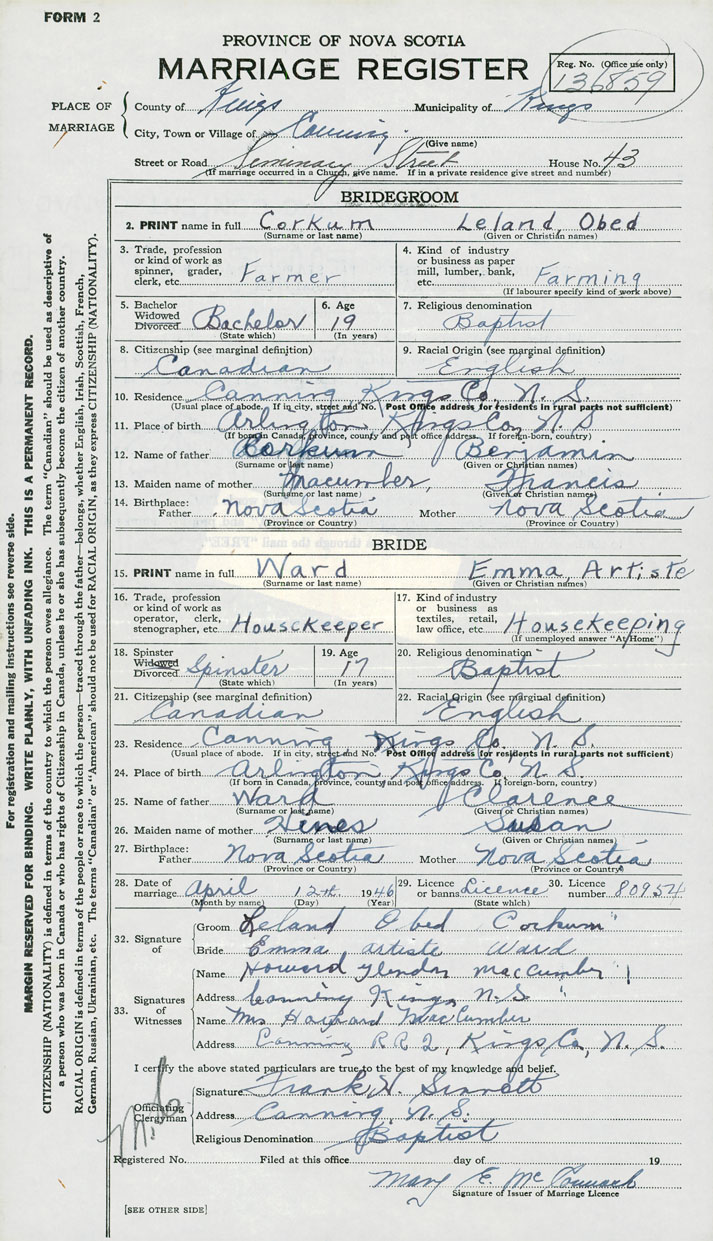 FORM 2
PROVINCE OF NOVA SCOTIA
MARRIAGE REGISTER
Reg. No. (Office use only)
136859
PLACE OF MARRIAGE
County of Kings Municipality of Kings
City, Town or Village of Canning
(Give name)
Street or Road Seminary Street House No. 43
(If marriage occurred in a Church, give name. If in a private residence give street and number)
BRIDEGROOM
2. PRINT name in full Corkum Leland, Obed
(Surname or last name) (Given or Christian names)
3. Trade, profession or kind of work as spinner, grader, clerk, etc. Farmer
4. Kind of industry or business as paper mill, lumber, bank, etc. Farming
(If labourer specify kind of work above)
5. Bachelor Widowed Divorced Bachelor
(State which)
6. Age 19
(In years)
7. Religious denomination
Baptist
8. Citizenship (see marginal definition)
Canadian
9. Racial Origin (see marginal definition)
English
10. Residence Canning Kings Co, N. S.
(Usual place of abode. If in city, street and No. Post Office address for residents in rural parts not sufficient)
11. Place of birth Arlington Kings Co, N. S
(If born in Canada, province, county and post office address. If foreign-born, country)
12. Name of father Corkum Benjamin
(Surname or last name) (Given or Christian names)
13. Maiden name of mother Macumber, Francis
(Surname or last name) (Given or Christian names)
14. Birthplace: Father Nova Scotia Mother Nova Scotia
(Province or Country) (Province or Country)
BRIDE
15. PRINT name in full Ward Emma, Artiste
(Surname or last name) (Given or Christian names)
16. Trade, profession or kind of work as operator, clerk, stenographer, etc. Housekeeper
17. Kind of industry or business as textiles, retail, law office, etc. Housekeeping
(If unemployed answer "At Home")
18. Spinster Widowed Divorced Spinster
(State which)
19. Age 17
(In years)
20. Religious denomination
Baptist
21. Citizenship (see marginal definition)
Canadian
22. Racial Origin (see marginal definition)
English
23. Residence Canning Kings Co. N. S.
(Usual place of abode. If in city, street and No. Post Office address for residents in rural parts not sufficient)
24. Place of birth Arlington Kings Co, N. S.
(If born in Canada, province, county and post office address. If foreign-born, country)
25. Name of father Ward Clarence
(Surname or last name) (Given or Christian names)
26. Maiden name of mother Hines Susan
(Surname or last name) (Given or Christian names)
27. Birthplace: Father Nova Scotia Mother Nova Scotia
(Province or Country) (Province or Country)
28. Date of marriage April 12th. 1946
(Month by name) (Day) (Year)
29. Licence or banns Licence
(State which)
30. Licence number 80954
32. Signature of
Groom Leland Obed Corkum
Bride Emma artiste Ward
33. Signatures of Witnesses
Name Howard Glendon MacCumber
Address Canning Kings N.S
Name Mrs Hayward MacCumber
Address Canning RR 2, Kings Co, N. S.
I certify the above stated particulars are true to the best of my knowledge and belief.
Officiating Clergyman
Signature Frank H. Sinnott
Address Canning, N. S.
Religious Denomination Baptist
Registered No. Filed at this office day of 19
Mary E. Mc
Signature of Issuer of Marriage Licence
[SEE OTHER SIDE]
For registration and mailing instructions see reverse side.
MARGIN RESERVED FOR BINDING. WRITE PLAINLY, WITH UNFADING INK. THIS IS A PERMANENT RECORD.
CITIZENSHIP (NATIONALITY) is defined in terms of the country to which the person owes allegiance. The term "Canadian" should be used as descriptive of
a person who was born in Canada or who has rights of Citizenship in Canada, unless he or she has subsequently become the citizen of another country.
RACIAL ORIGIN is defined in terms of the people or race to which the person—traced through the father—belongs, whether English, Irish, Scottish, French,
German, Russian, Ukrainian, etc. The terms "Canadian" or "American" should not be used for RACIAL ORIGIN, as they express CITIZENSHIP (NATIONALITY).